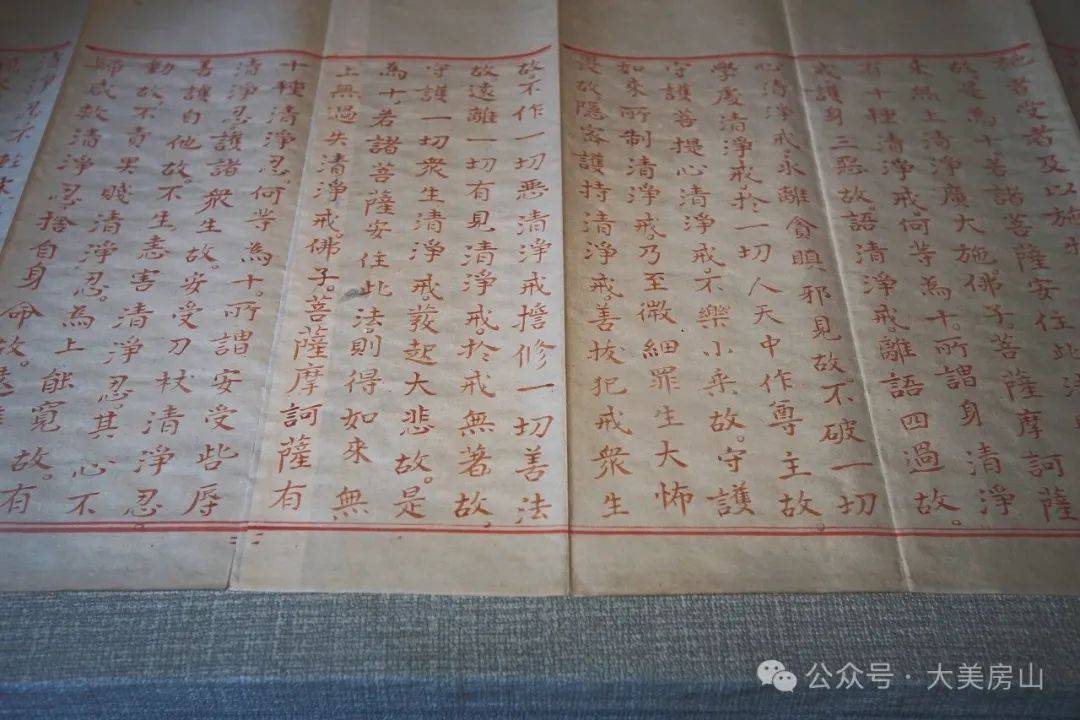 施者受者及以施
故是為十若諸菩薩安住此法
來無上清淨廣大施。佛子。菩薩摩訶薩
有十種清淨戒。何等為十。所謂身清淨
戒護身三惡故。語清淨戒。離語四過故。
心清淨戒。永離貪瞋邪見故。不破一切
學處清淨戒。於一切人天中作尊主故
守護菩提心清淨戒。不樂小乘故。守護
如來所制清淨戒。乃至微細罪生大怖
畏故隱密護持清淨戒。善拔犯戒衆生
故不作一切惡清淨戒。誓修一切善法
故遠離一切有見清淨戒。於戒無著故,
守護一切衆生清淨戒。發起大悲故。是
為十。若諸菩薩安住此法。則得如來無
上無過失清淨戒。佛子。菩薩摩訶薩有
十種清淨忍何等為十。所謂安受呰辱
清淨忍護諸衆生故。安受刀杖清淨忍。
善護自他故。不生恚害清淨忍。其心不
動故。不責卑賤清淨忍。為上能寬故。有
歸咸救清淨忍捨自身命故。遠離
公众号·大美房山